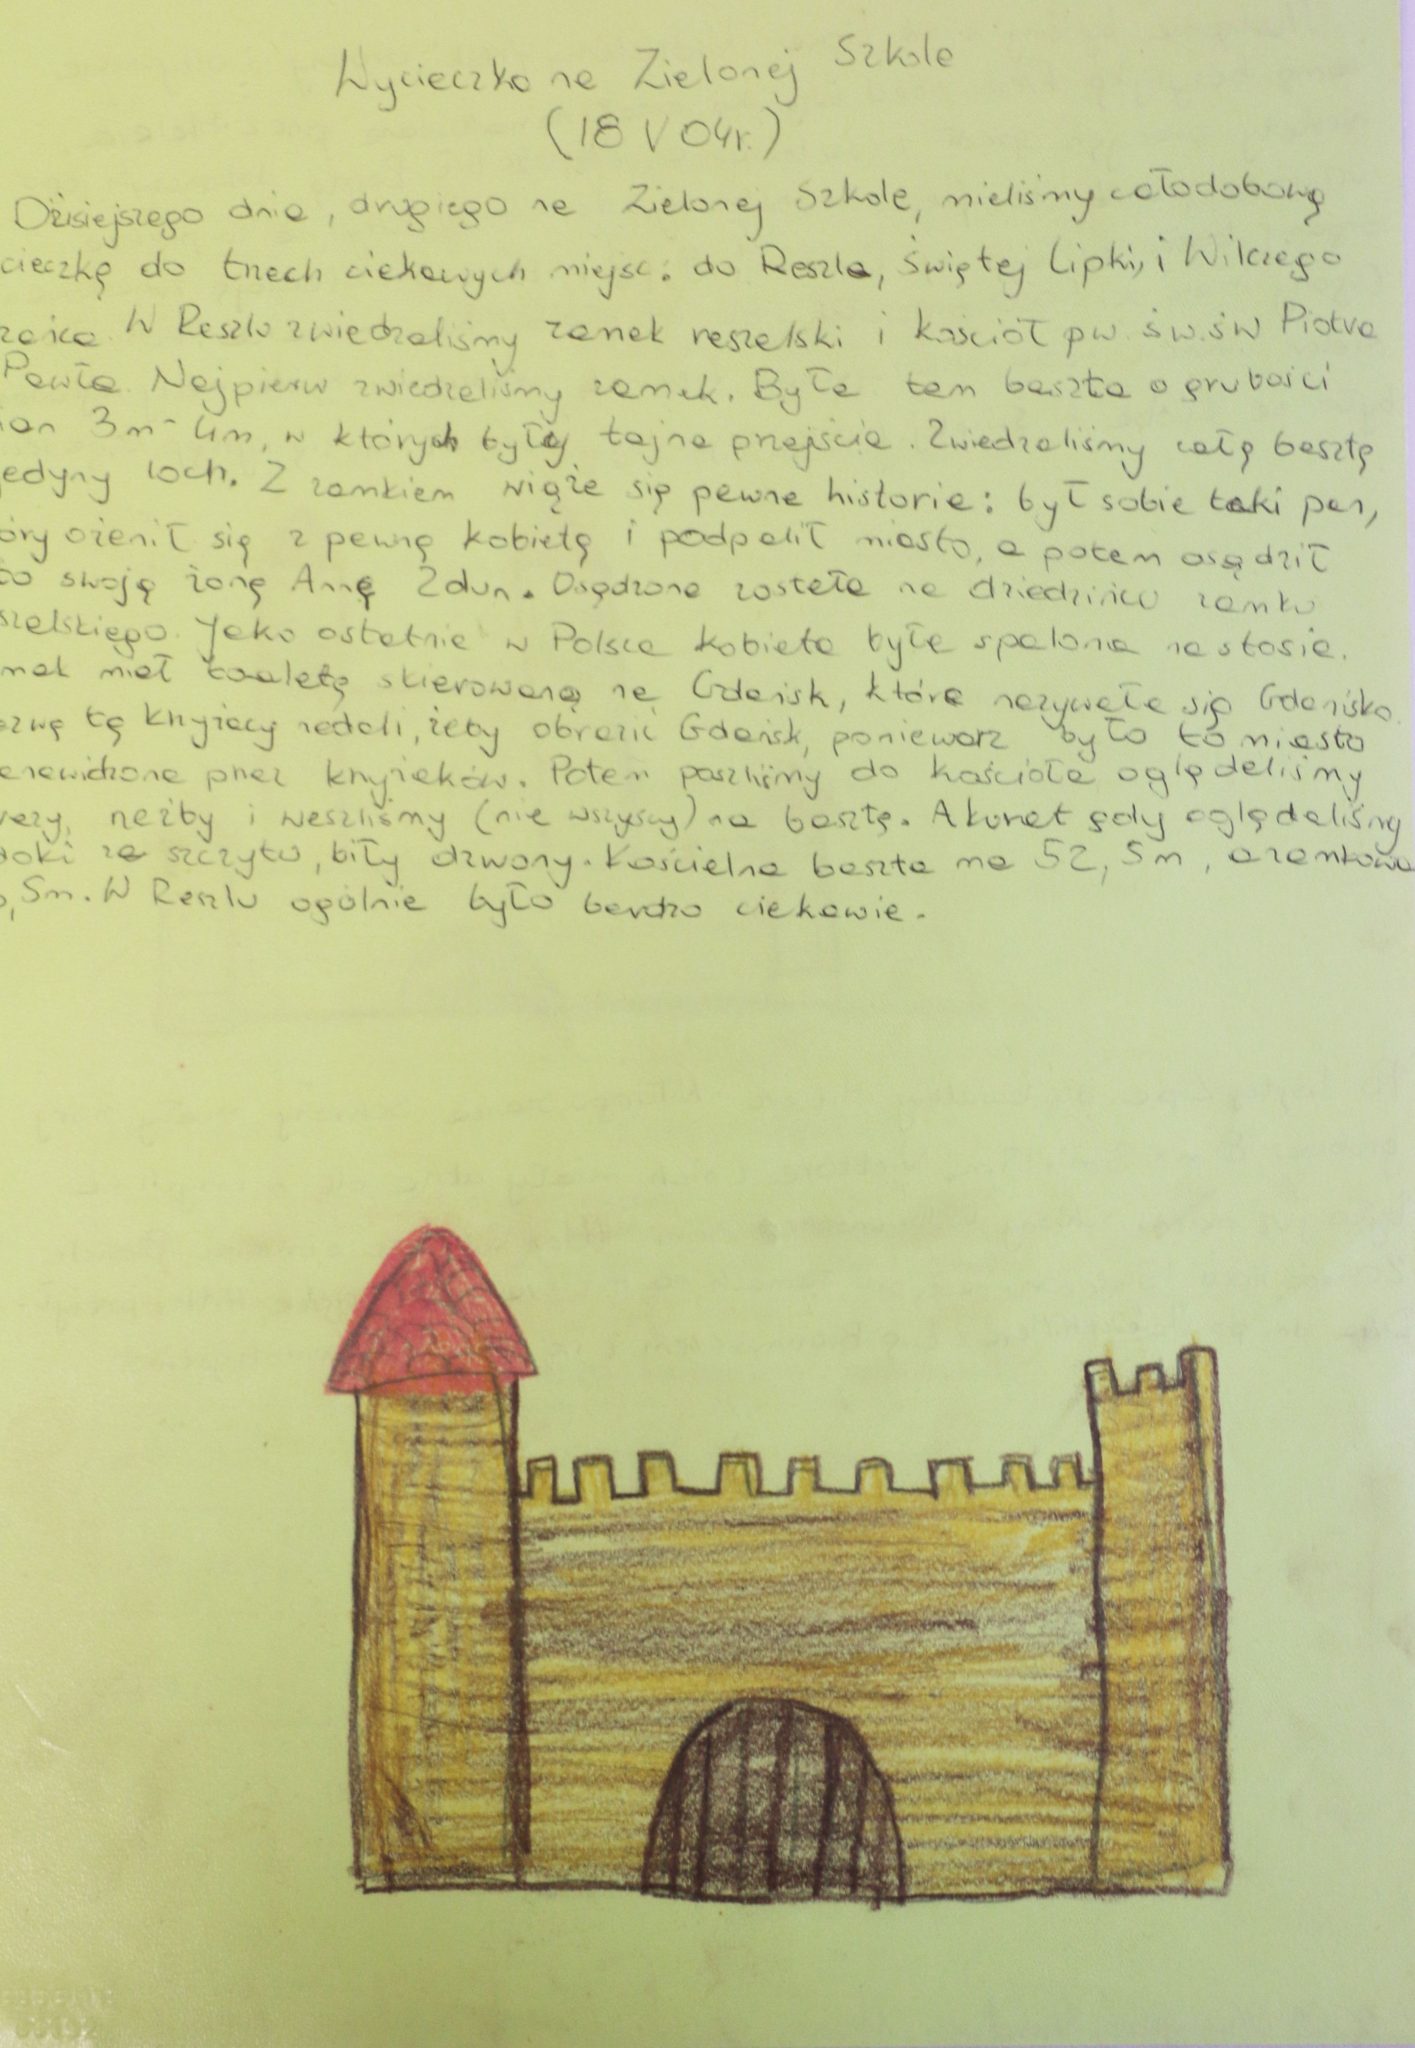 Wycieczka na Zielonej Szkole
(18 V 04r.)
Dzisiejszego dnia, drugiego na Zielonej Szkole, mieliśmy całodobową
cieczkę do trzech ciekawych miejsc: do Reszla, Świętej Lipki, i Wilczego
zańca W Reszlu zwiedzaliśmy zamek reszelski i kościół pw. św.św Piotra
Pawła. Najpierw zwiedzaliśmy zamek. Była tam baszta o grubości
ian 3m - 4m, w których były tajne przejścia. Zwiedzaliśmy całą basztę
jedyny loch. Z zamkiem wiąże się pewna historia: był sobie taki pan,
óry ożenił się z pewną kobietą i podpalił miasto, a potem osądził
to swoją żonę Annę Zdun. Osądzona została na dziedzińcu zamku
szelskiego. Jako ostatnia w Polsce kobieta była spalona na stosie.
mek miał toaletę skierowaną na Gdańsk, która nazywała się Gdanisko.
azwę tę knyżacy nadali, żeby obrazić Gdańsk, poniewarz było to miasto
enawidzone przez knyżaków. Potem poszliśmy do kościoła oglądaliśmy
rzeźby i weszliśmy (nie wszyscy) na basztę. Akurat gdy oglądaliśmy
doki ze szczytu, biły dzwony. Kościelna baszta ma 52, 5m, a zamkowa
, 5m. W Reszlu ogólnie było bardzo ciekawie.